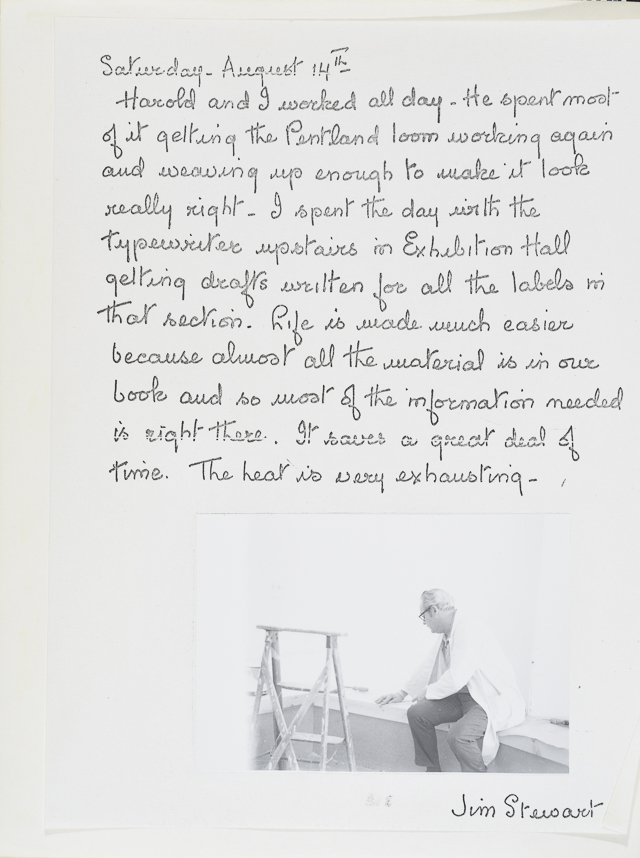 Saturday - August 14th
Harold and I worked all day - He spent most
of it getting the Pentland loom working again
and weaving up enough to make it look
really right - I spent the day with the
typewriter upstairs in Exhibition Hall
getting drafts written for all the labels in
that section. Life is made much easier
because almost all the material is in our
book and so most of the information needed
is right there. It saves a great deal of
time. The heat is very exhausting -
Jim Stewart